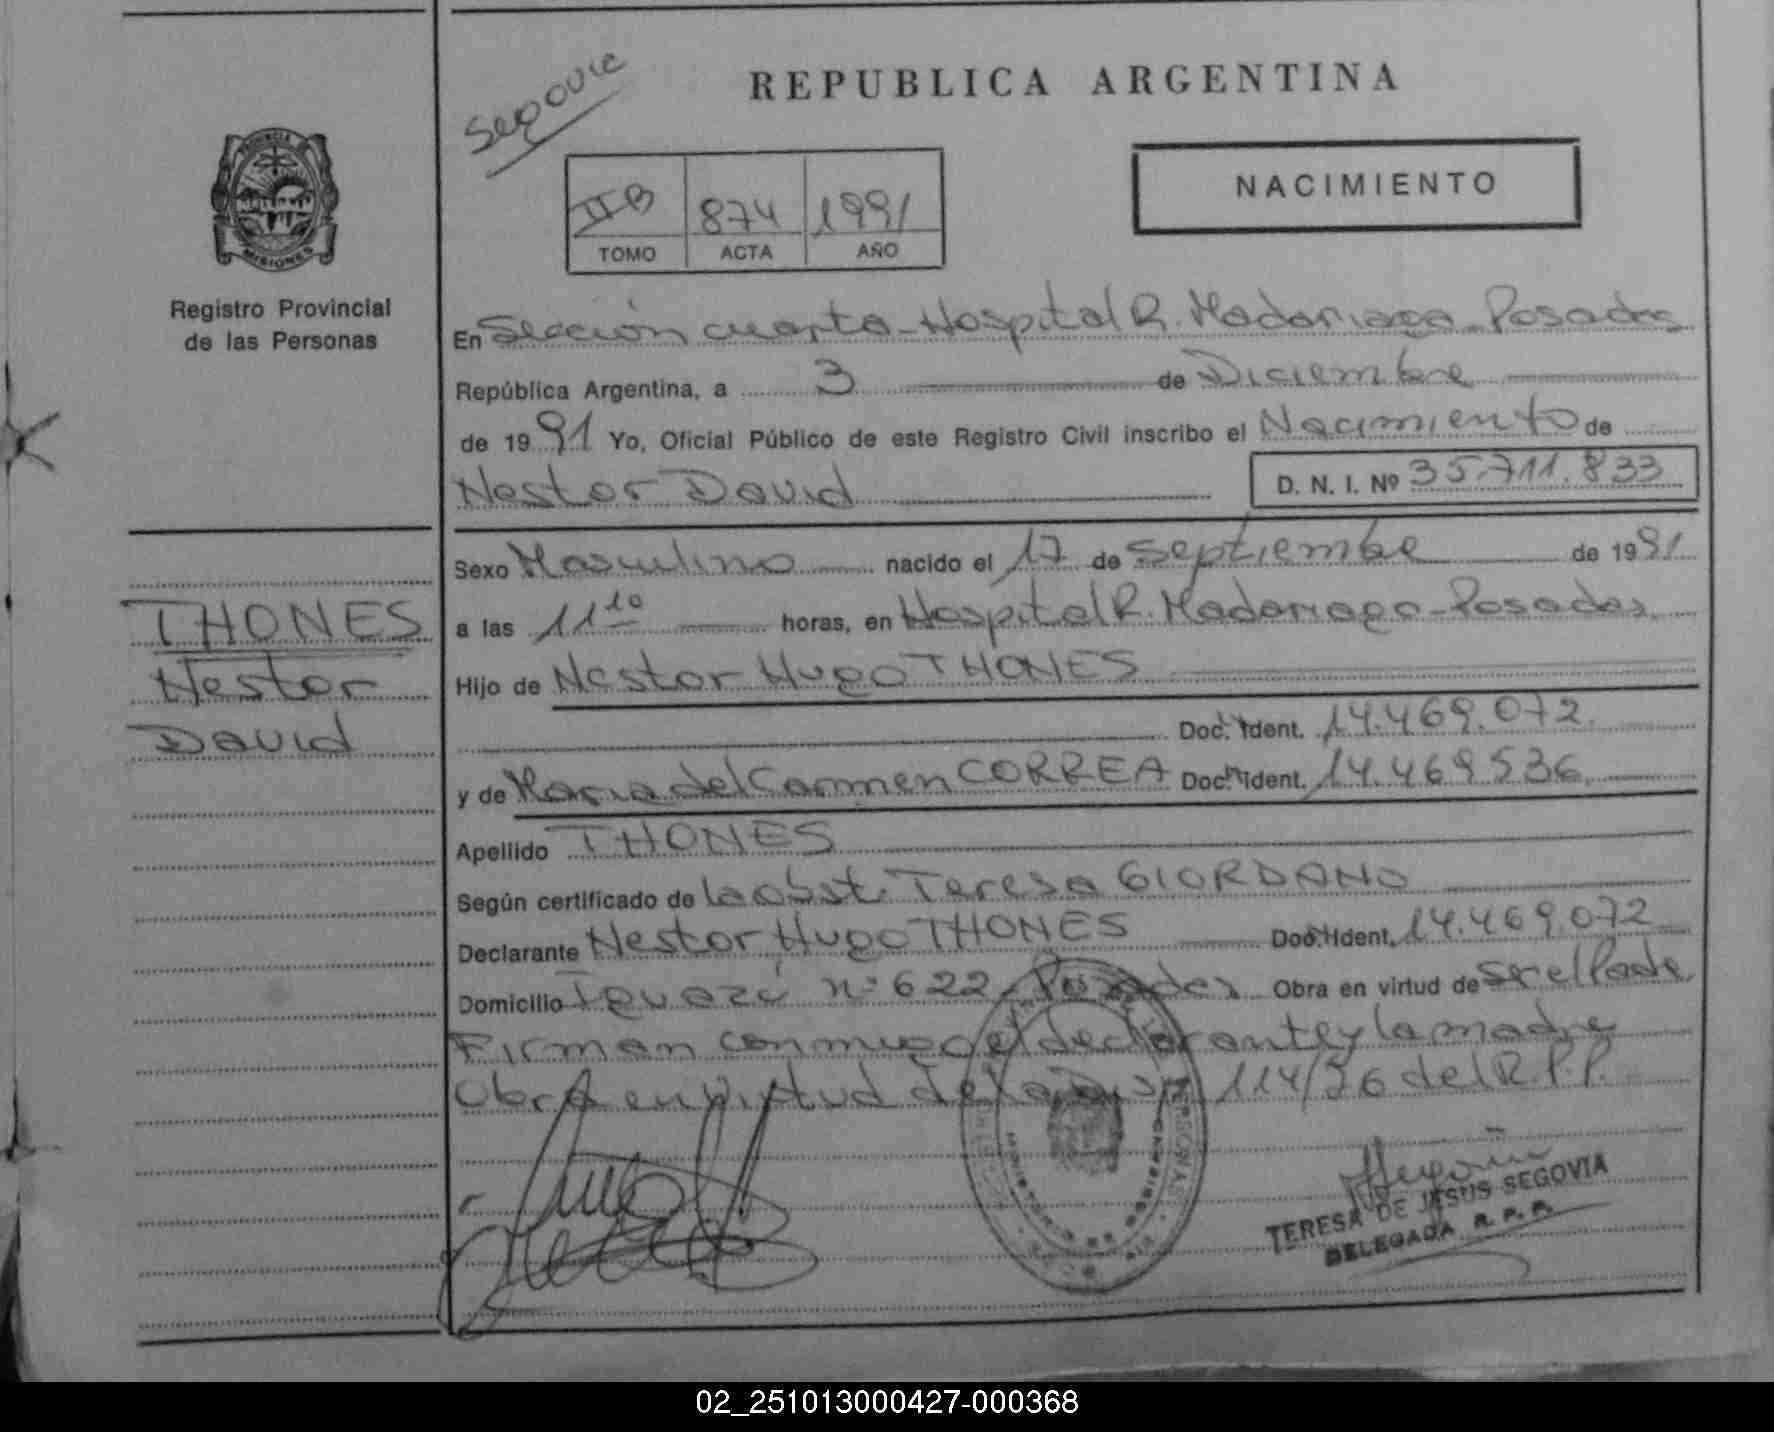 Segovia
REPUBLICA ARGENTINA
NACIMIENTO
II B 874 1991
TOMO ACTA AÑO
PROVINCIA DE
MISIONES
Registro Provincial
de las Personas
En Sección cuarta-Hospital R. Madariaga-Posadas
República Argentina, a 3 de Diciembre
de 1991 Yo, Oficial Público de este Registro Civil inscribo el Nacimiento de
Nestor David D. N. I. Nº 35.711.833
Sexo Masculino nacido el 17 de septiembre de 1991
a las 11 10 horas, en Hospital R. Madariaga-Posadas.
Hijo de Nestor Hugo THONES
Doc. Ident. 14.469.072
y de Maria del Carmen CORREA Doc. Ident. 14.469536
Apellido THONES
Según certificado de la obst. Teresa GIORDANO
Declarante Nestor Hugo THONES Doc. Ident. 14.469.072
Domicilio Iguazú nº 622-Posadas Obra en virtud de ser el Padre
Firman conmigo el declarante y la madre
Obra en virtud de la Disp. 114/76 del R.P.P.
THONES
Nestor
David
TERESA DE JESUS SEGOVIA
DELEGADA R. P. P.
02_251013000427-000368